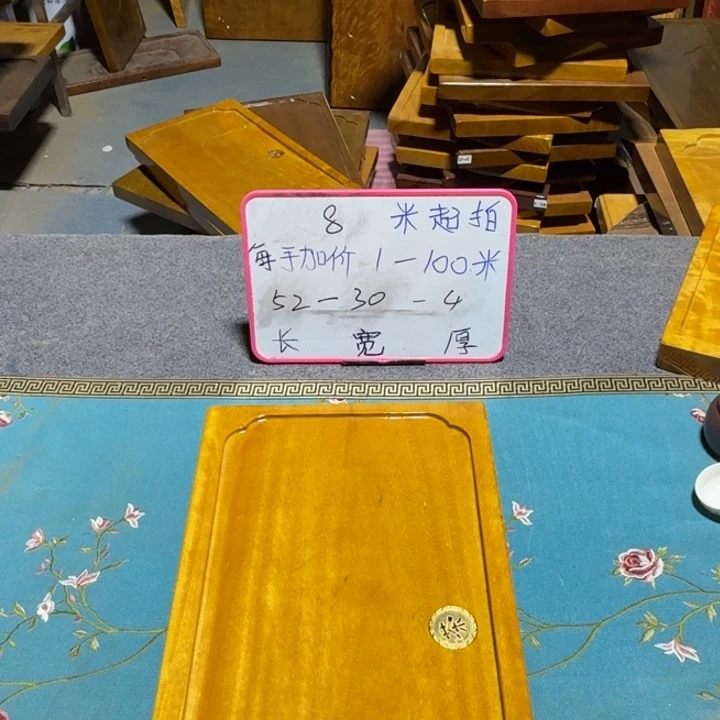 8 米起拍
每手加价 1-100米
52-30-4
长 宽 厚